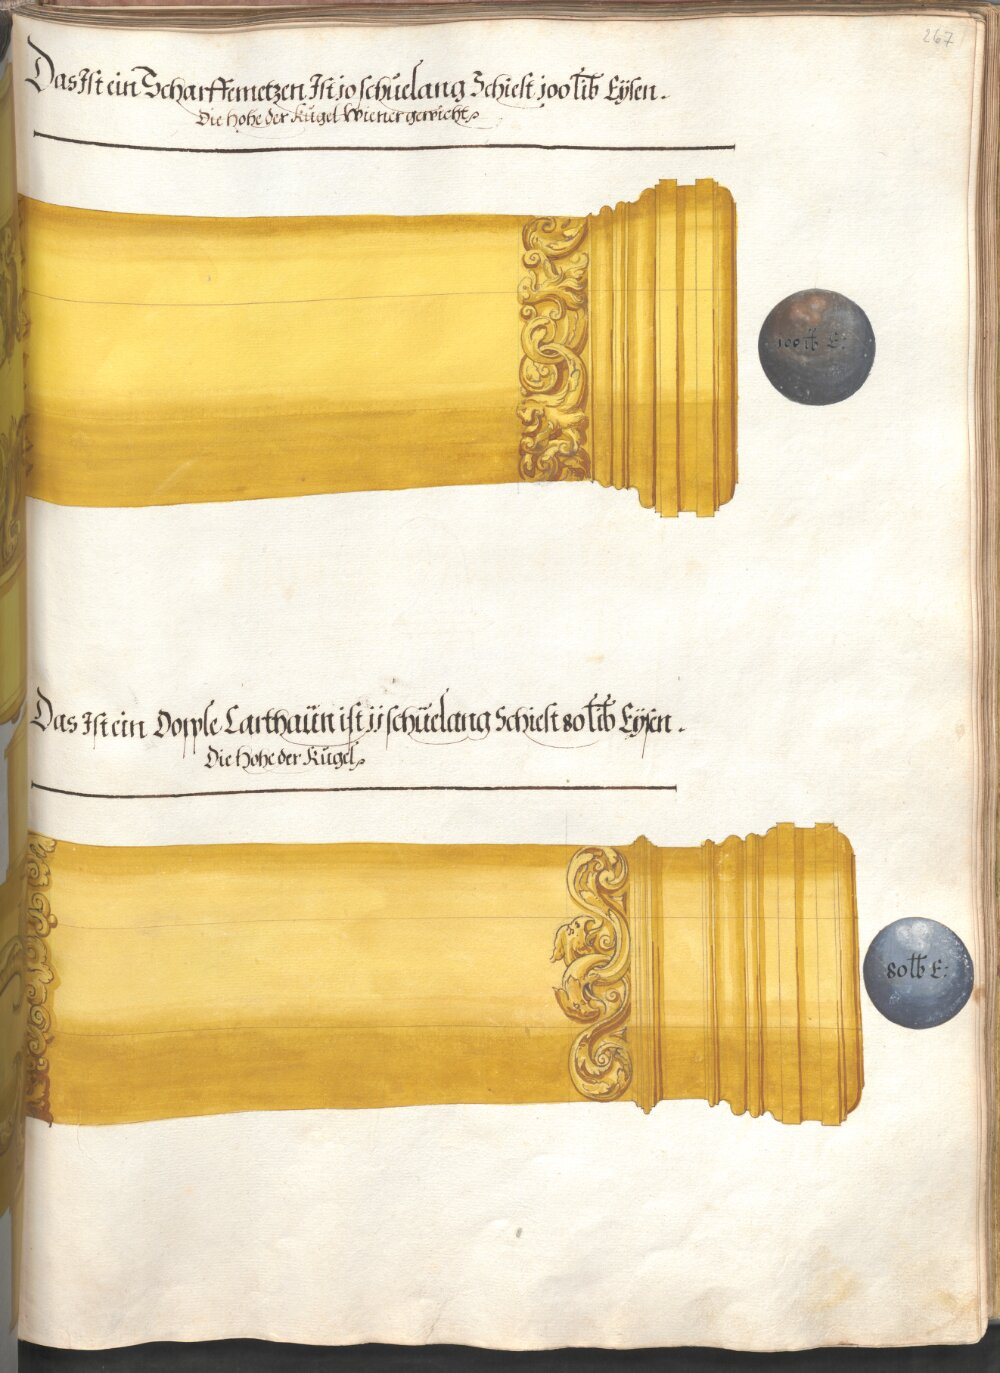 267
Das Ist ein Scharffemetzen Ist jo schuelang Schiest joo lib Eÿsen.
Die hohe der Kugel Wiener gewicht
100 lb E:
Das Ist ein Dopple Carthaün ist jj schüelang Schiest 80 lib Eÿsen.
Die hohe der Kugel
80 lb E: